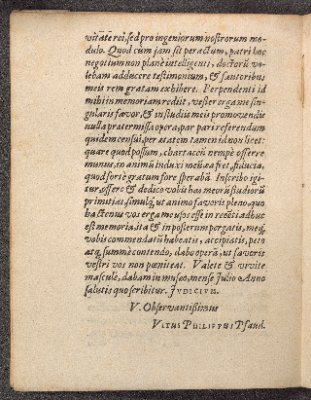 vitate rei, sed pro ingeniorum nostrorum modulo.
Quod cum jam sit peractum, patri hoc
negotium non planè intelligenti, doctorũ volebam
adducere testimonium, & fautoribus
meis rem gratam exhibere. Perpendenti id
mihi in memoriam rediit, vester erga me singularis
favor, & in studiis meis promovendis
nulla prætermissa opera, par pari referendum
quidem censui, per ætatem tamen id non licet:
quare quod possum, chartaceũ nempè offerre
munus, in animũ induxi meũ, ea fret9 fiducia,
quod fortè gratum fore sperabã. Inscribo igitur,
offero & dedico vobis has meorũ studiorũ
primitias, simulq; ut animo favoris pleno, quo
hactenus vos erga me usos esse in recẽti adhuc
est memoria, ita & in posterum pergatis, meq;
vobis commendatũ habeatis, accipiatis, pero
atq; summè contendo, dabo operã, ut favoris
vestri vos non pœniteat. Valete & vivite
masculè, dabam in museo, mense Julio Anno
salutis quo scribitur. JVDICIVM.
V. Observantissimus
VITUS PHILIPPUS Pfaud.